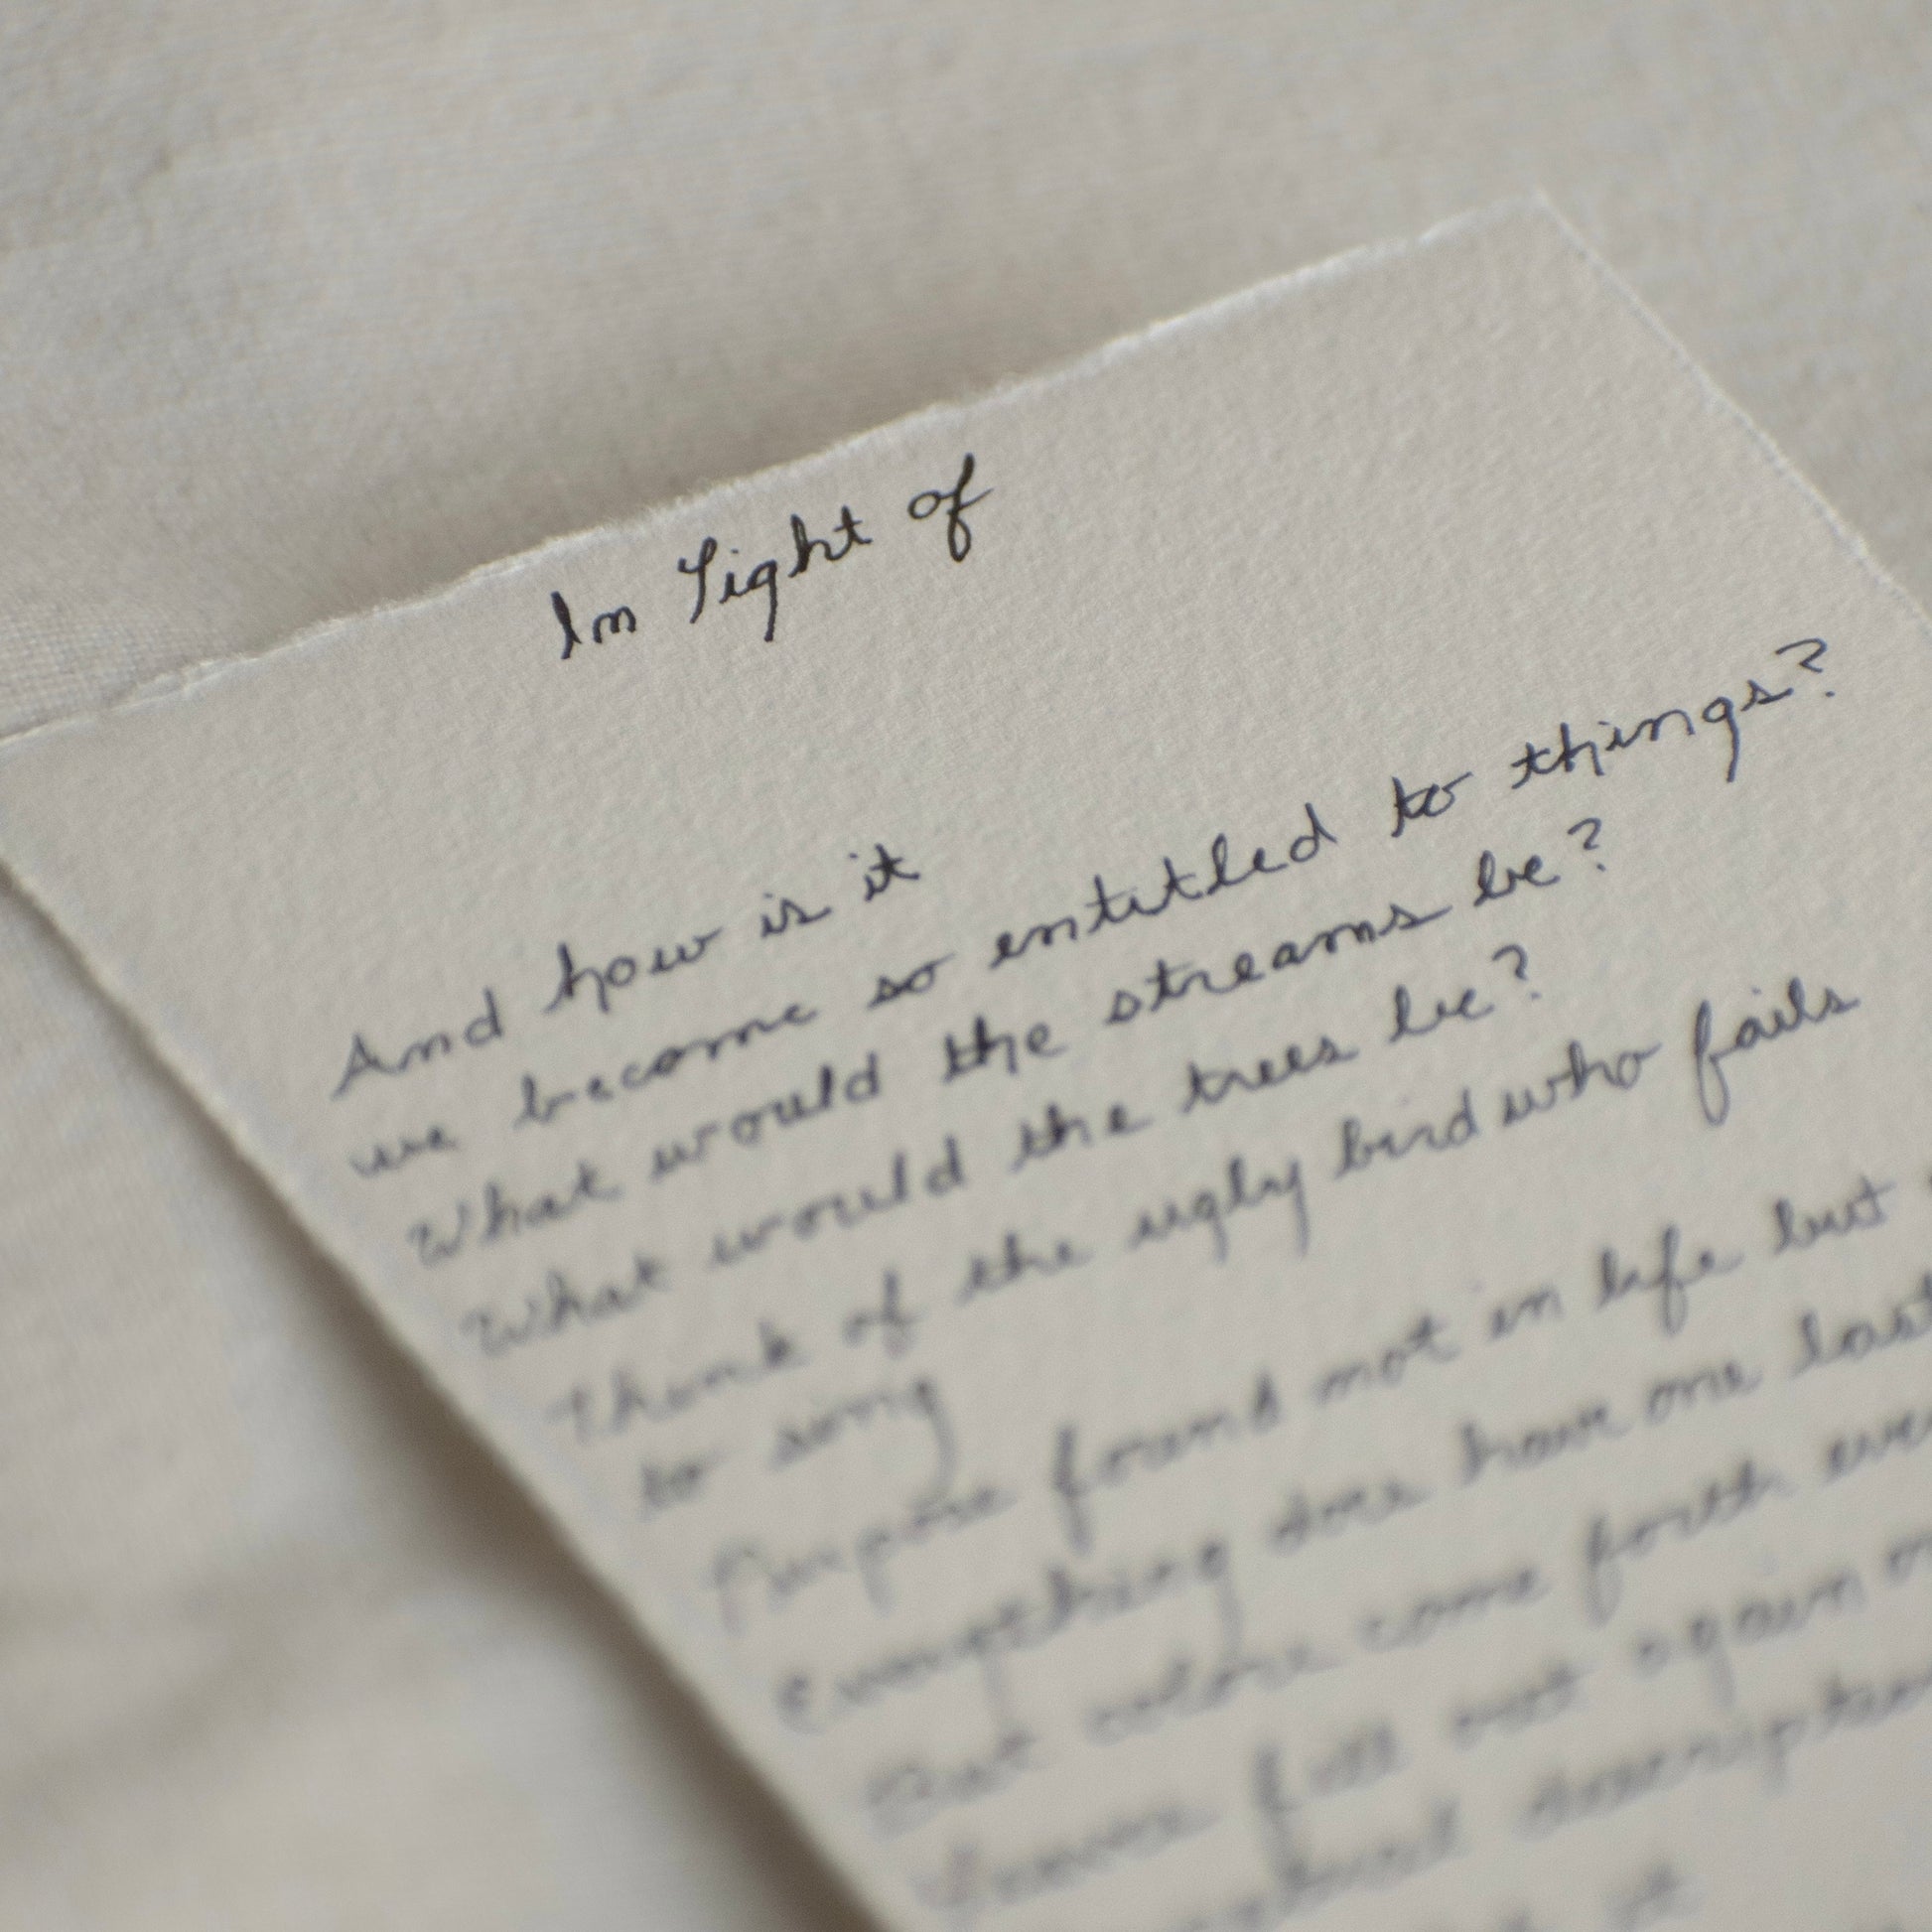 In Light of
And how is it
we become so entitled to things?
What would the streams be?
What would the trees be?
Think of the ugly bird who fails
to sing
Purpose found not in life but
Everything does have one last
But colors come forth
fall out again